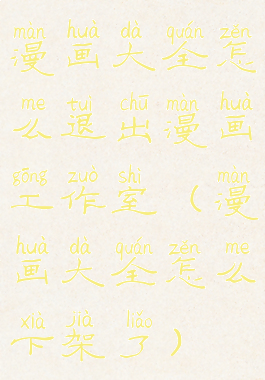 màn huà dà quán zěn
漫画大全怎
me tuì chū màn huà
么退出漫画
gōng zuò shì màn
工作室（漫
huà dà quán zěn me
画大全怎么
xià jià liǎo
下架了）